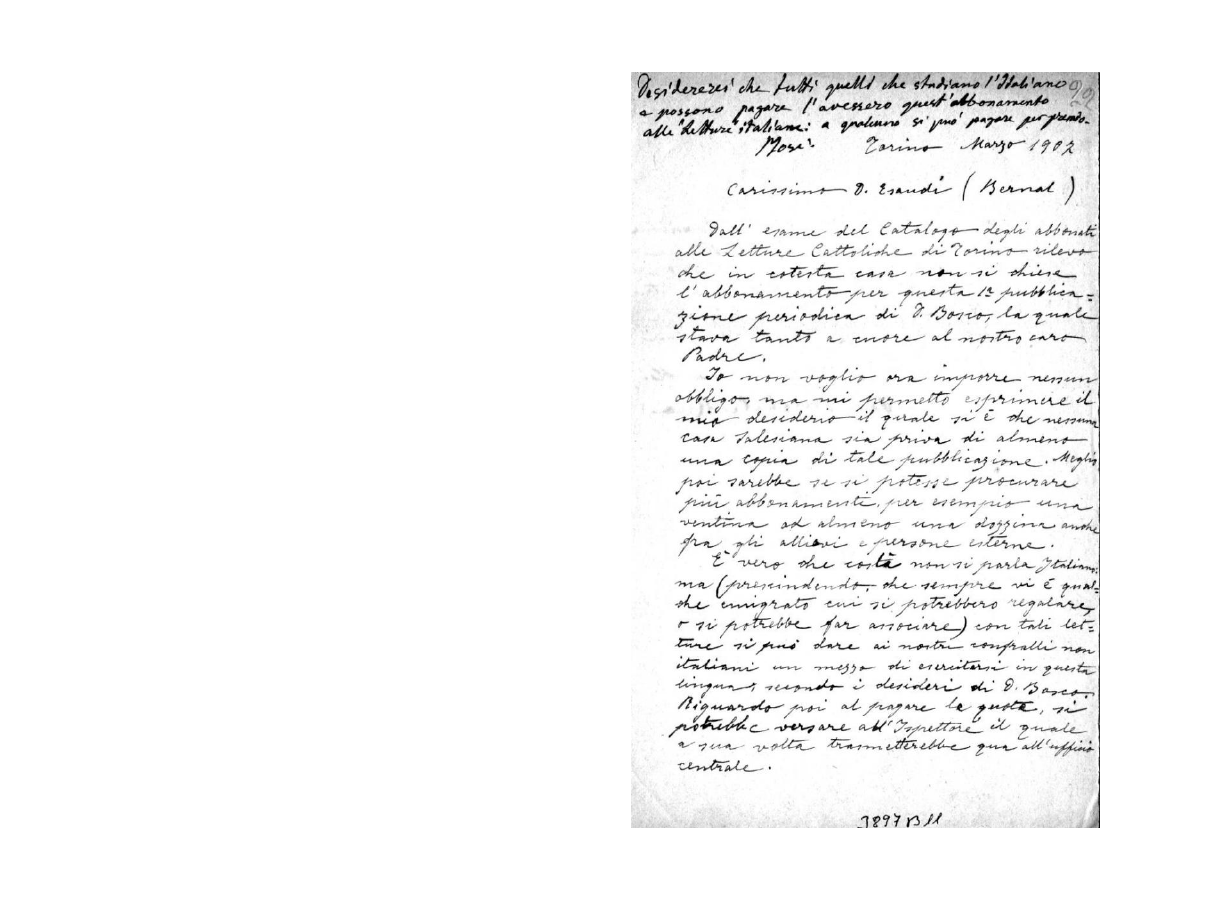 Desidererei che tutti quelli che studiano l'Italiano
e possono pagare l'avessero quest'abbonamento
alle "Letture italiane: a qualcuno si può pagare per premio.
Torino Marzo 1902
Carissimo D. Esaudi (Bernal)
Dall' esame del Catalogo degli abbonati
alle Letture Cattoliche di Torino rilevo
che in cotesta casa non si chiese
l'abbonamento per questa 1ª pubblica=
zione periodica di D. Bosco, la quale
stava tanto a cuore al nostro caro
Padre.
Io non voglio ora imporre nessun
obbligo, ma mi permetto esprimere il
mio desiderio il quale si è che nessuna
casa Salesiana sia priva di almeno
una copia di tale pubblicazione. Meglio
poi sarebbe se si potesse procurare
più abbonamenti, per esempio una
ventina od almeno una dozzina anche
fra gli allievi e persone esterne.
È vero che costà non si parla Italiano;
ma (prescindendo, che sempre vi è qual=
che emigrato cui si potrebbero regalare,
o si potrebbe far associare) con tali let=
ture si può dare ai nostri confralli non
italiani un mezzo di esercitarsi in questa
lingua, secondo i desideri di D. Bosco.
Riguardo poi al pagare la quota, si
potrebbe versare all'Ispettore il quale
a sua volta trasmetterebbe qua all'ufficio
centrale.
3897 B11